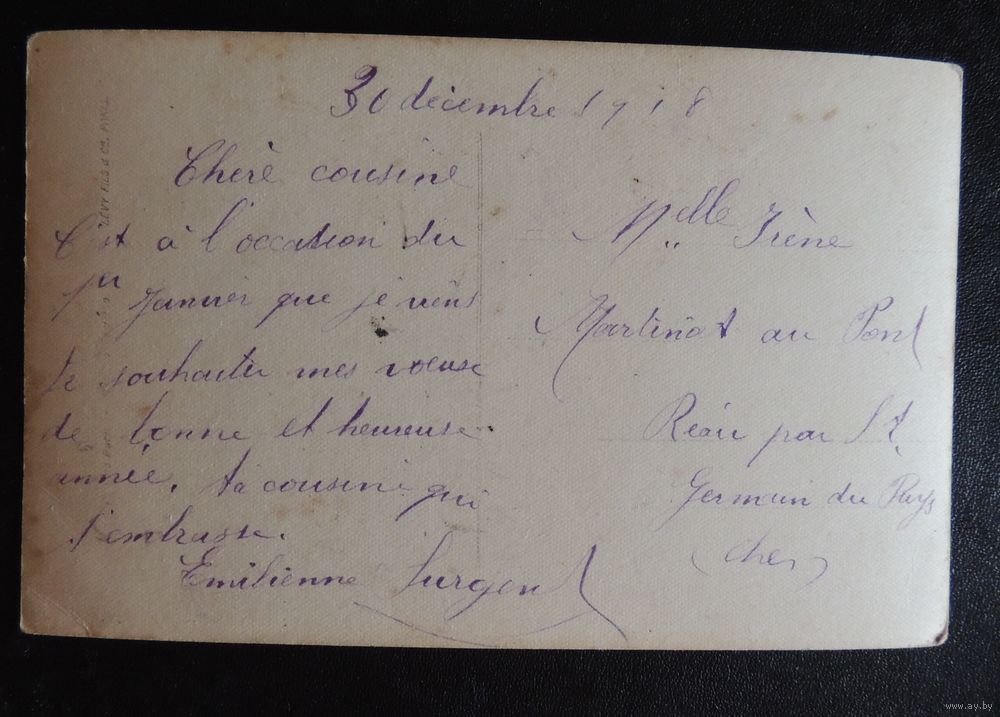 30 décembre 1918
Chère cousine
C'est à l'occation du
1er Janvier que je viens
te souhaiter mes voeuse
de bonne et heureuse
année. ta cousine qui
t'embrasse.
Emilienne Surgent
Melle Irène
Martinat au Pont
Réau par St
Germain du Puys
Cher
LEVY FILS & Co. PARIS
www.ay.by